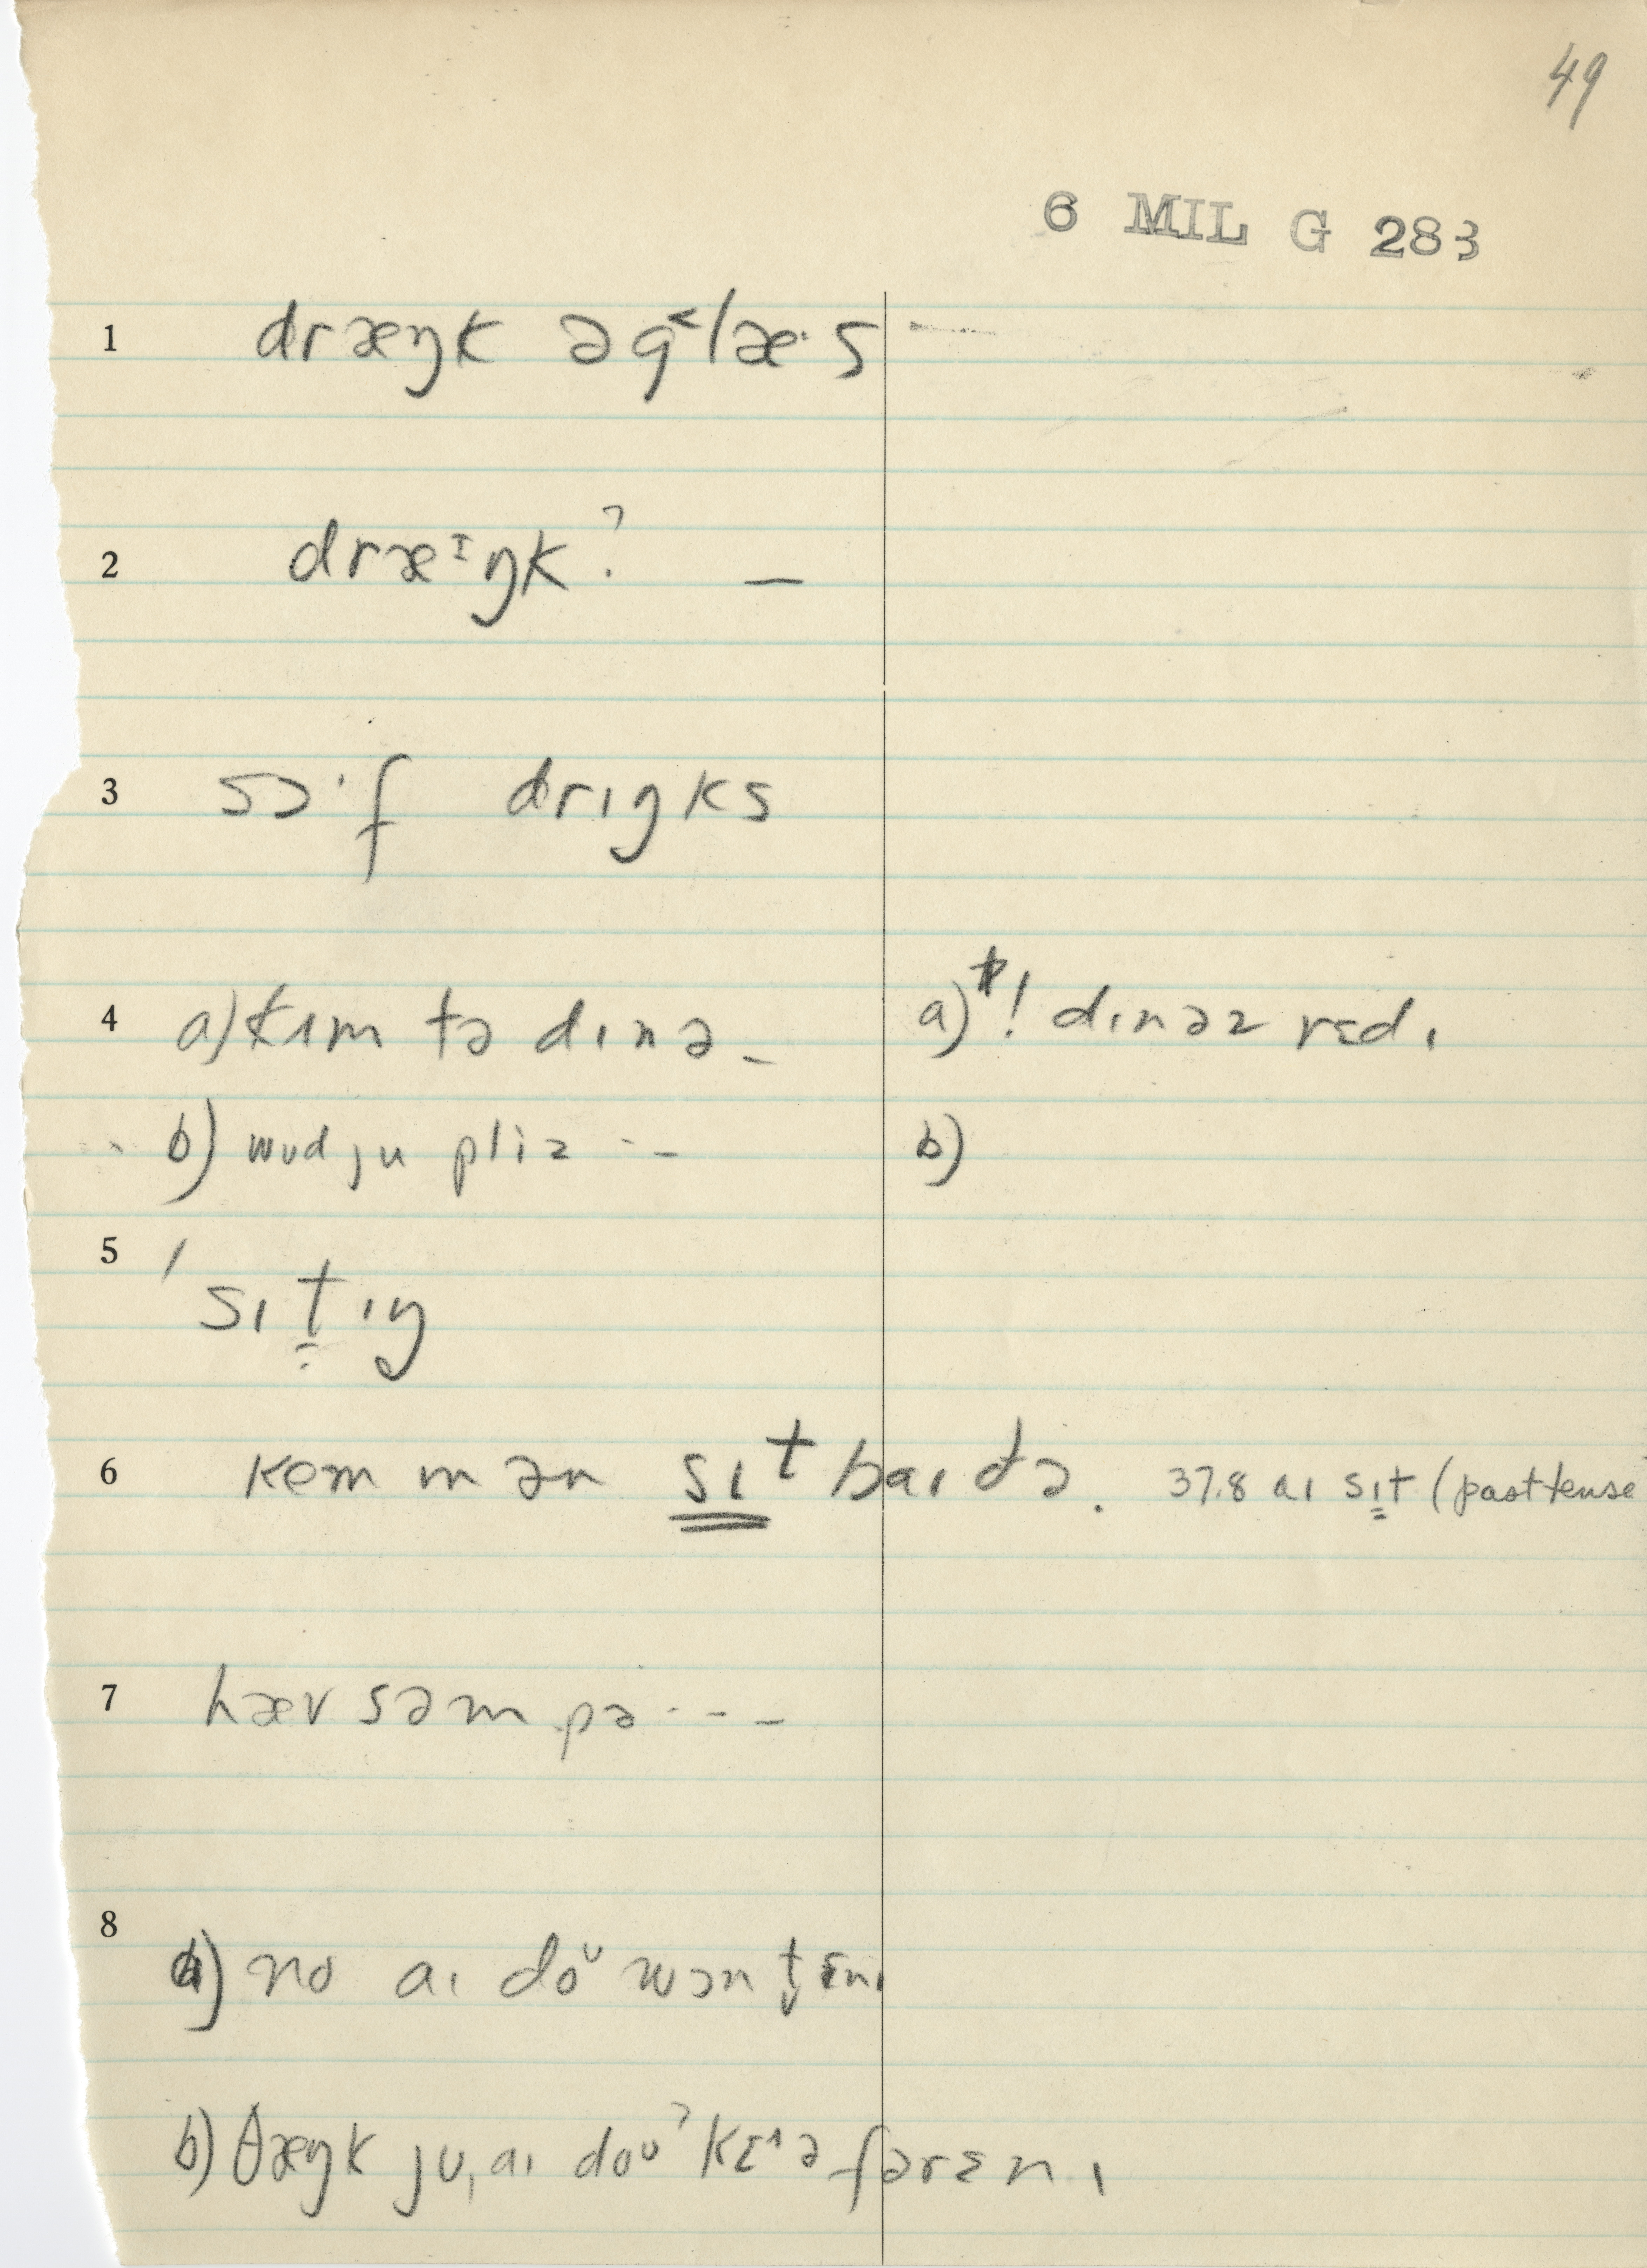 49
6 MIL G 283
1 dræŋk ə g˂læ·s
2 dræᶦŋk? –
3 sɔ·f drɪŋks
4 a) kʌm tə dɪnə – a) ! dɪnəz rɛdɪ
b) wʊd ju pliz - – b)
5 ˈsɪt̬ɪŋ
6 kəm ɪn ən sɪt baɪ də. 37.8 aɪ sɪt (past tense
7 hæv səm pə - - -
8
a) no aɪ doᵘ wɔn t̬ ɛnɪ
b) θæŋk ju, aɪ doᵘˀ kɛᶺə fər ɛnɪ